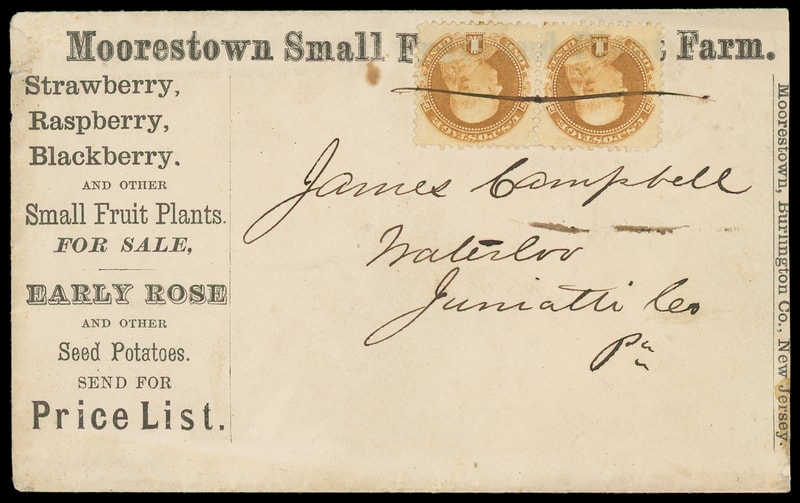 Moorestown Small F Farm.
Strawberry,
Raspberry,
Blackberry.
AND OTHER
Small Fruit Plants.
FOR SALE,
EARLY ROSE
AND OTHER
Seed Potatoes.
SEND FOR
Price List.
James Campbell
Waterloo
Juniatti Co
Pa
Moorestown, Burlington Co., New Jersey.
U.S. POSTAGE
1
U.S. POSTAGE
1